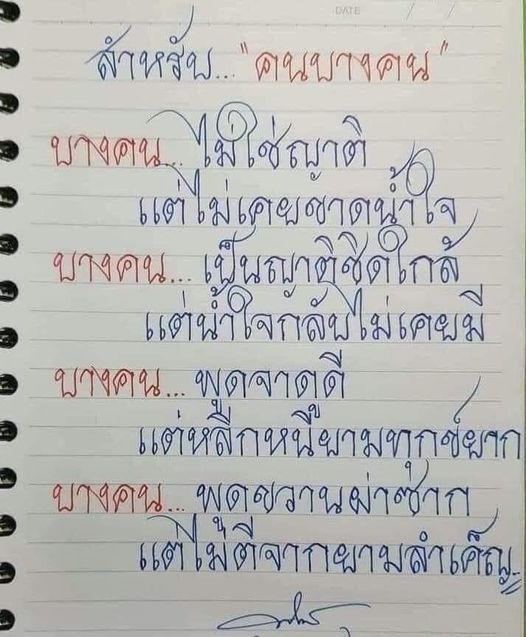 DATE / /
สำหรับ... "คนบางคน"
บางคน... ไม่ใช่ญาติ
แต่ไม่เคยขาดน้ำใจ
บางคน... เป็นญาติชิดใกล้
แต่น้ำใจกลับไม่เคยมี
บางคน... พูดจาดูดี
แต่หลีกหนียามทุกข์ยาก
บางคน... พูดขวานผ่าซาก
แต่ไม่ตีจากยามลำเค็ญ..